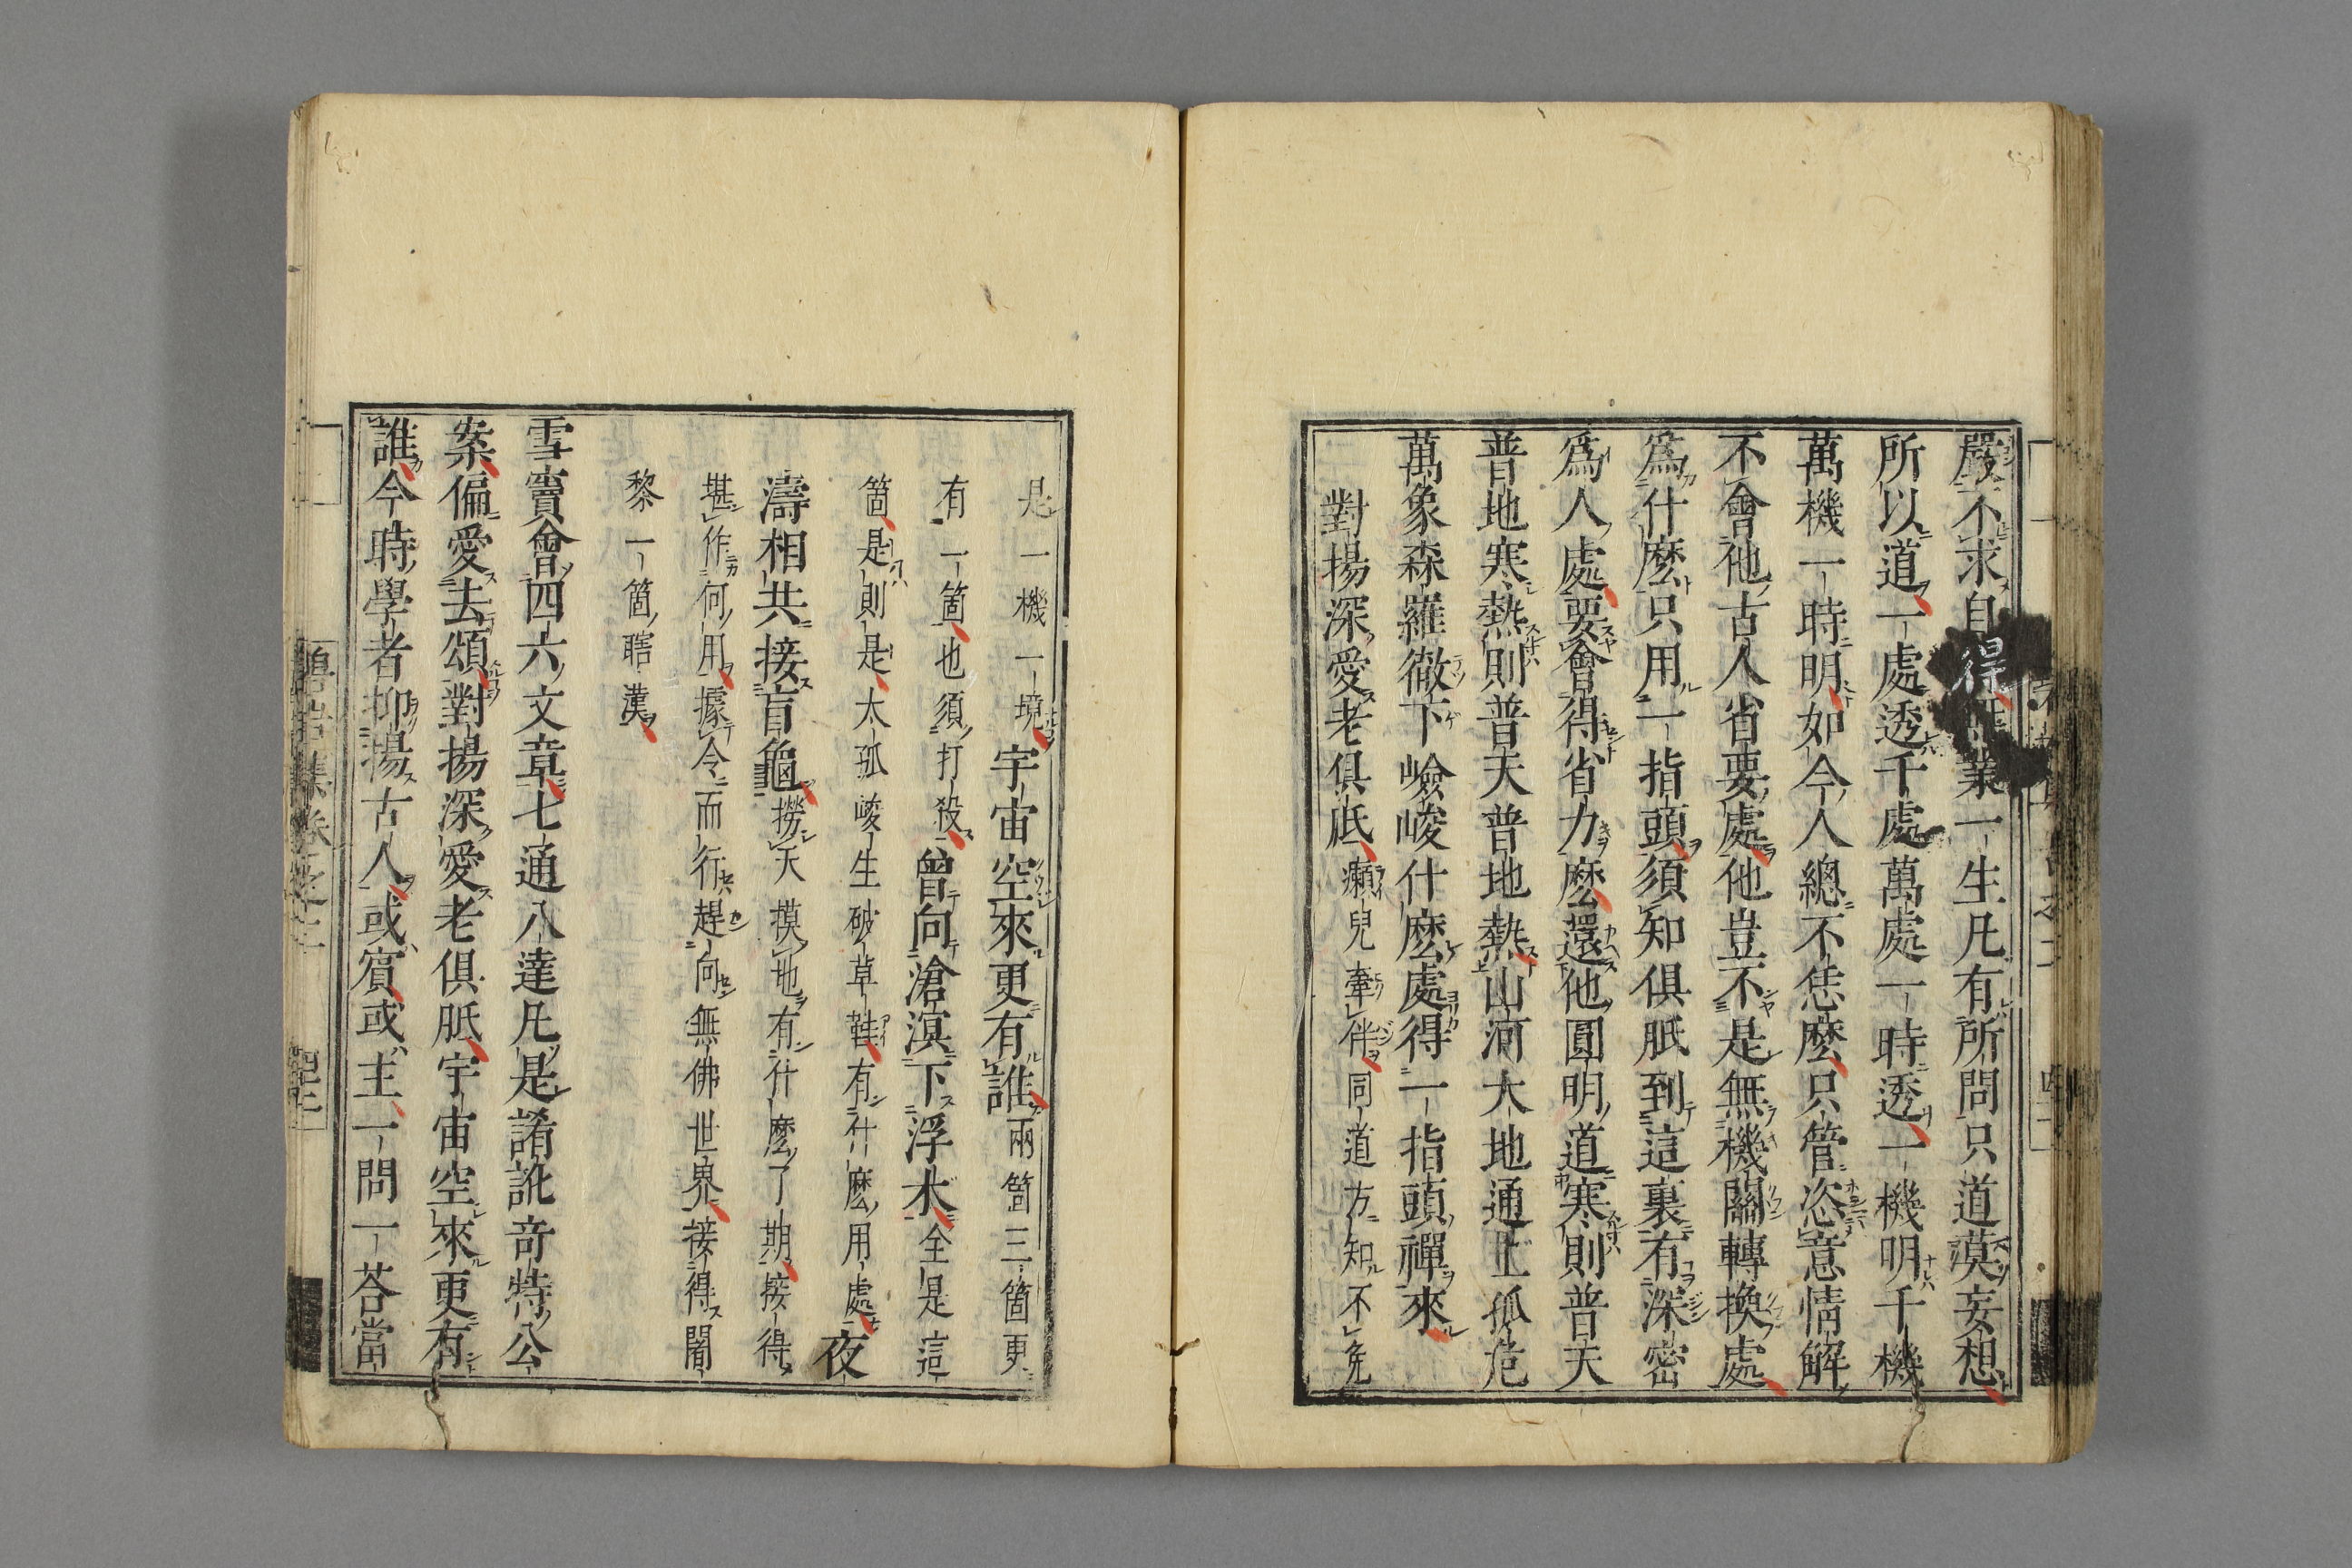 嚴不求自得
業一生凡有所問只道莫妄想
所以道一處透千處萬處一時透一機明千機
萬機一時明如今人總不恁麽只管恣意情解
不會他古人省要處他豈不是無機關轉換處
為什麽只用一指頭須知俱胝到這裏有深密
為人處要會得省力麽還他圓明道寒則普天
普地寒熱則普天普地熱山河大地通上孤危
萬象森羅徹下嶮峻什麽處得一指頭禪來
對揚深愛老俱胝癩兒牽伴同道方知不免
是一機一境宇宙空來更有誰兩箇三箇更
有一箇也須打殺曾向滄溟下浮木全是這
箇是則是太孤峻生破草鞋有什麽用處夜
濤相共接盲龜撈天摸地有什麽了期接得
堪作何用據令而行趕向無佛世界接得闍
黎一箇瞎漢
雪竇會四六文章七通八達凡是誵訛奇特公
案偏愛去頌對揚深愛老俱胝宇宙空來更有
誰今時學者抑揚古人或賓或主一問一荅當
碧岩集卷之二